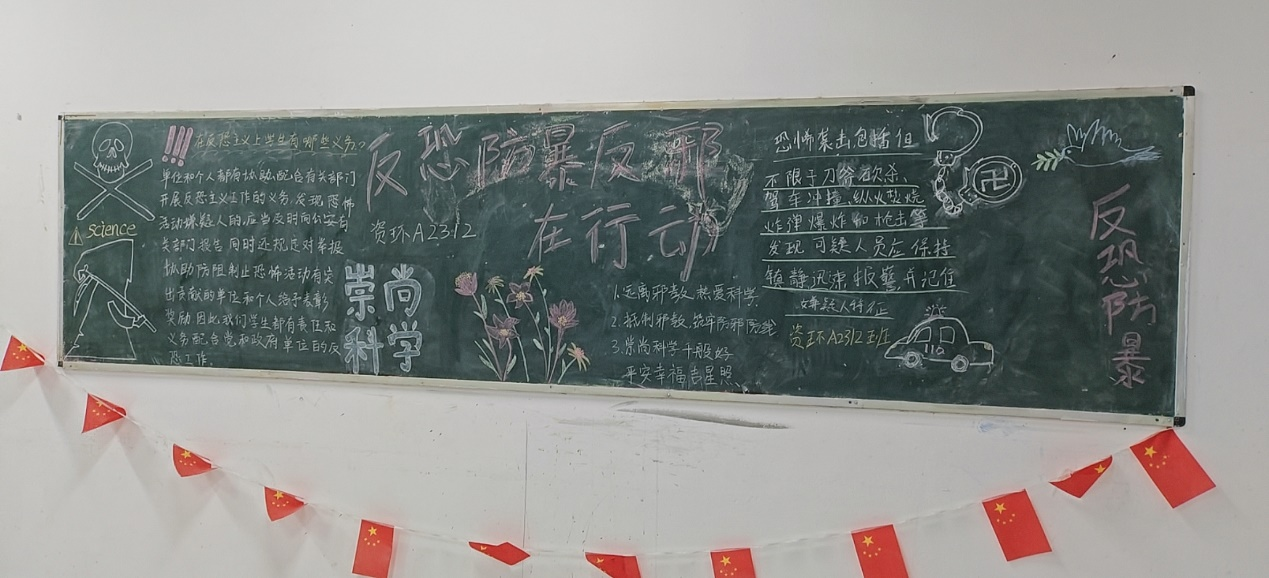 !!!在反恐主义上学生有哪些义务?
单位和个人都有协助配合有关部门
开展反恐主义工作的义务,发现恐怖
活动嫌疑人的,应当及时向公安有
关部门报告,同时还规定对举报
协助防阻制止恐怖活动有突
出贡献的单位和个人给予表彰
奖励.因此我们学生都有责任和
义务配合党和政府单位的反
恐工作.
science
反恐防暴反邪
在行动
资环A2312
崇尚
科学
1.远离邪教.热爱科学.
2.抵制邪教.筑牢防邪防线
3.崇尚科学十般好
平安幸福吉星照.
恐怖袭击包括但
不限于刀斧砍杀、
驾车冲撞,纵火焚烧
炸弹爆炸和枪击等
发现可疑人员应保持
镇静迅速报警,并记住
嫌疑人特征
资环A2312班
110
反恐防暴